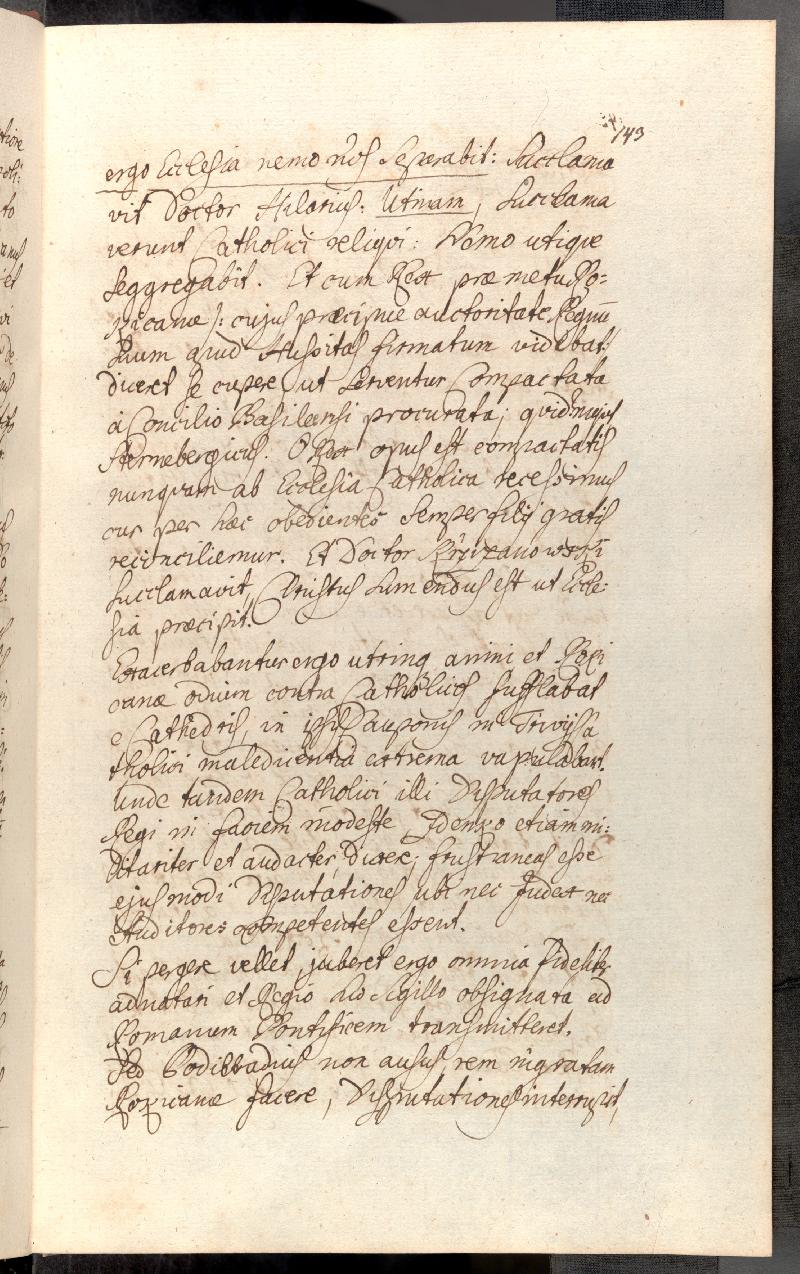 143
ergo Ecclesia nemo nos Seperabit: Succlama
vit Doctor Hilarius: Utinam, Succlama
verunt Catholici reliqvi: Nemo utiqve
Seggregabit. Et cum Rex præ metu Ro=
zicanæ /: cujus præcipue auctoritate Regnu
Suum apud Hussitas firmatum videbat:/
diceret Se cupere ut Serventur Compactata
à Concilio Basileensi procurata; qvid
Sternebergicus. O Rex opus est compactatis
nunqvam ab Ecclesia Catholica recessimus
cur per hæc obedientes Semper filij gratis
reconciliemur. Et Doctor Krzizanowski
Succlamavit, Christus Sumendus est ut Eccle:
sia præcipit.
Exacerbabantur ergo utrinq animi et Roki
canæ odium contra Catholicos Sufflabat
e Cathedris, in ipsis Cauponis in Trivijs Ca
tholici maledicentia extrema vapulabant.
Unde tandem Catholici illi Disputatores
Regi in faciem modeste Zdenko etiam mi:
litariter et audacter, dicere; frustraneas esse
ejusmodi Disputationes ubi nec Judex nec
Auditores competentes essent.
Si pergere vellet, juberet ergo omnia fideliter
adnotari et Regio Sub Sigillo obsignata ad
Romanum Pontificem transmitteret.
Sed Podiebradius non ausus, rem ingratam
Rokicanæ facere, Disputationes interrupit,